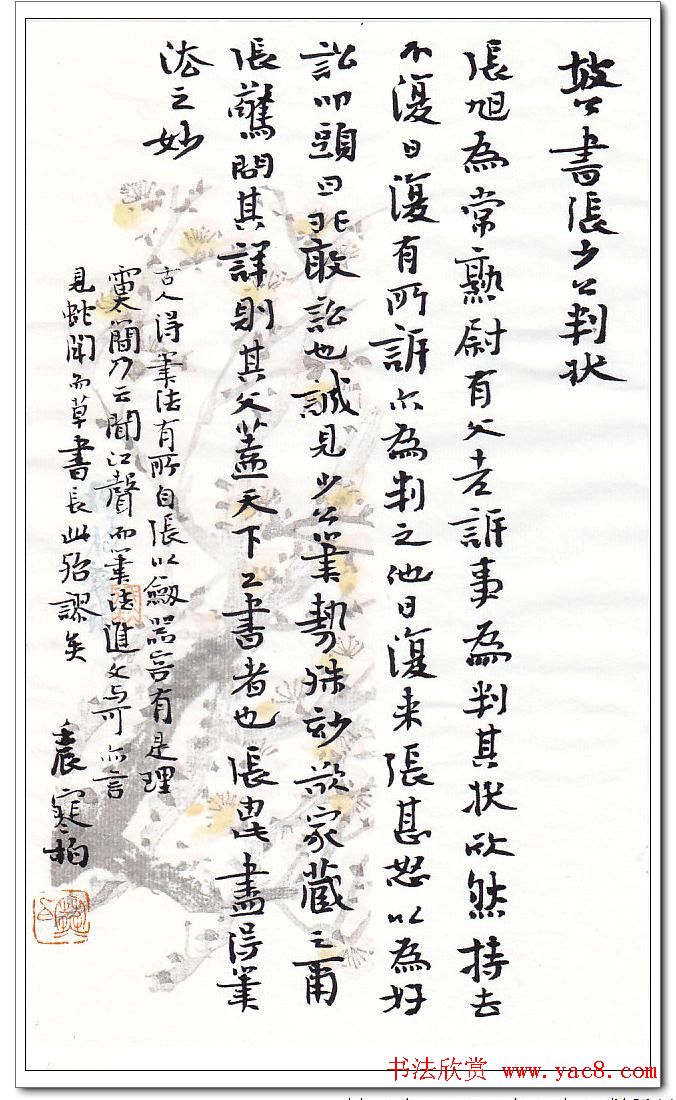 坡公書張少公判狀
張旭為常熟尉有父老訴事為判其狀欣然持去
不復日復有所訴亦為判之他日復来張甚怒以為好
訟叩頭曰非敢訟也誠見少公筆勢殊妙欲家藏之爾
張驚問其詳則其父蓋天下工書者也張由此盡得筆
法之妙
古人得筆法有所自張以劍器容有是理
雷太簡乃云聞江聲而筆法進文與可亦言
見蛇鬥而草書長此殆謬矣
壬辰寒柏
书法欣赏 www.yac8.com